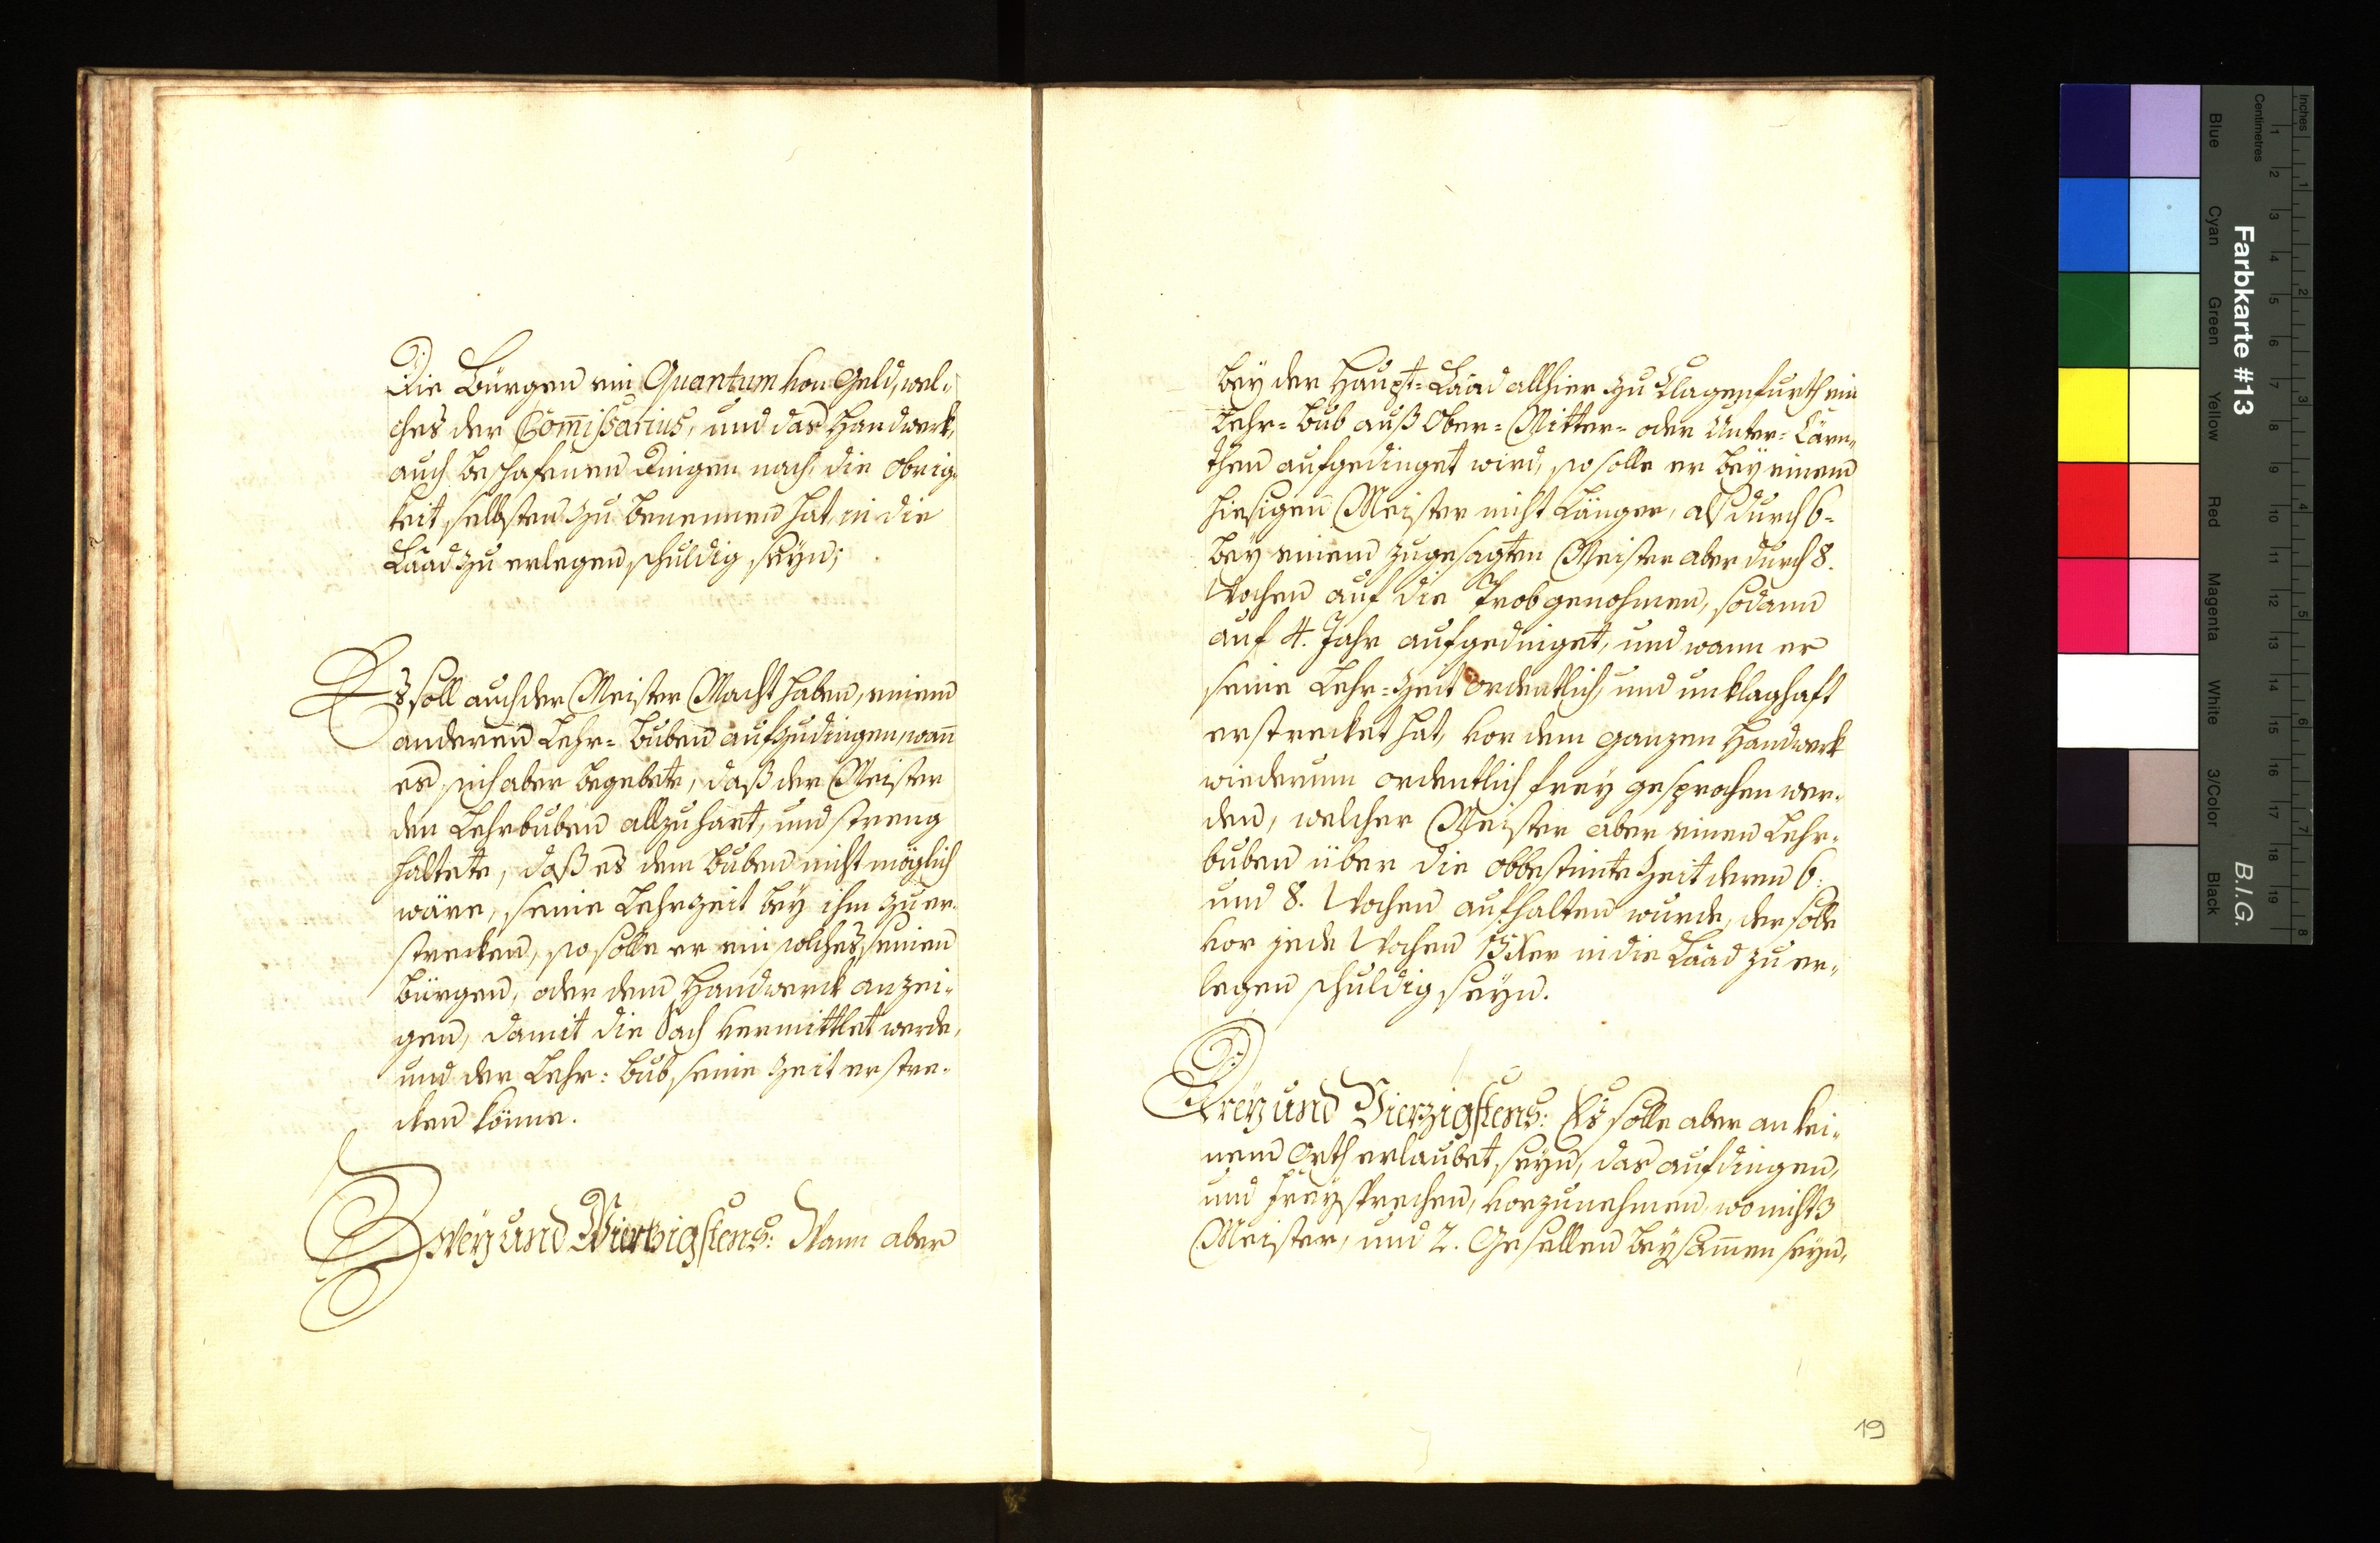 Die Bürgen ein Quantum von Geld, wel-
ches der Com̄issarius, und das Handwerk,
auch beschafenen Dingen nach, die Obrig-
keit selbsten zu benennen hat, in die
Laad zu erlegen schuldig seyn;
Es soll auch der Meister Macht haben, einem
anderen Lehr-Buben aufzudingen, wan̄
es sich aber begebete, daß der Meister
den Lehrbuben allzuhart, und streng
haltete, daß es dem Buben nicht möglich
wäre, seine Lehrzeit bey ihm zu er-
strecken, so solle er ein solches seinen
Bürgen, oder dem Handwerck anzei-
gen, damit die Sach vermittlet werde,
und der Lehr-Bub seine Zeit erstre-
cken könne.
Zweÿ und Vierzigstens: Wann aber
beÿ der Haupt-Laad allhier zu Clagenfurth ein
Lehr-Bub auß Ober- Mitter- oder Unter-Cärn-
then aufgedinget wird, so solle er beÿ einem
hiesigen Meister nicht länger, als durch 6-
beÿ einem zugesagten Meister aber durch 8.
Wochen auf die Prob genohmen, sodann
auf 4. Jahr aufgedinget, und wann er
seine Lehr-Zeit ordentlich, und unklaghaft
erstrecket hat, vor dem ganzen Handwerk
wiederum ordentlich freÿ gesprochen wer-
den, welcher Meister aber einen Lehr-
buben über die obbestimte Zeit deren 6.
und 8. Wochen aufhalten wurde, der solle
vor jede Wochen in die Laad zu er-
legen schuldig seyn.
Dreÿ und Vierzigstens: Es solle aber an kei-
nem Orth erlaubet seyn, das aufdingen,
und freÿsprechen, vorzunehmen, wo nicht 3
Meister, und 2. Gesellen beÿsam̄en seyn,
19
Farbkarte #13
B.I.G.
Inches
Centimetres
Blue
Cyan
Green
Yellow
Red
Magenta
White
3/Color
Black